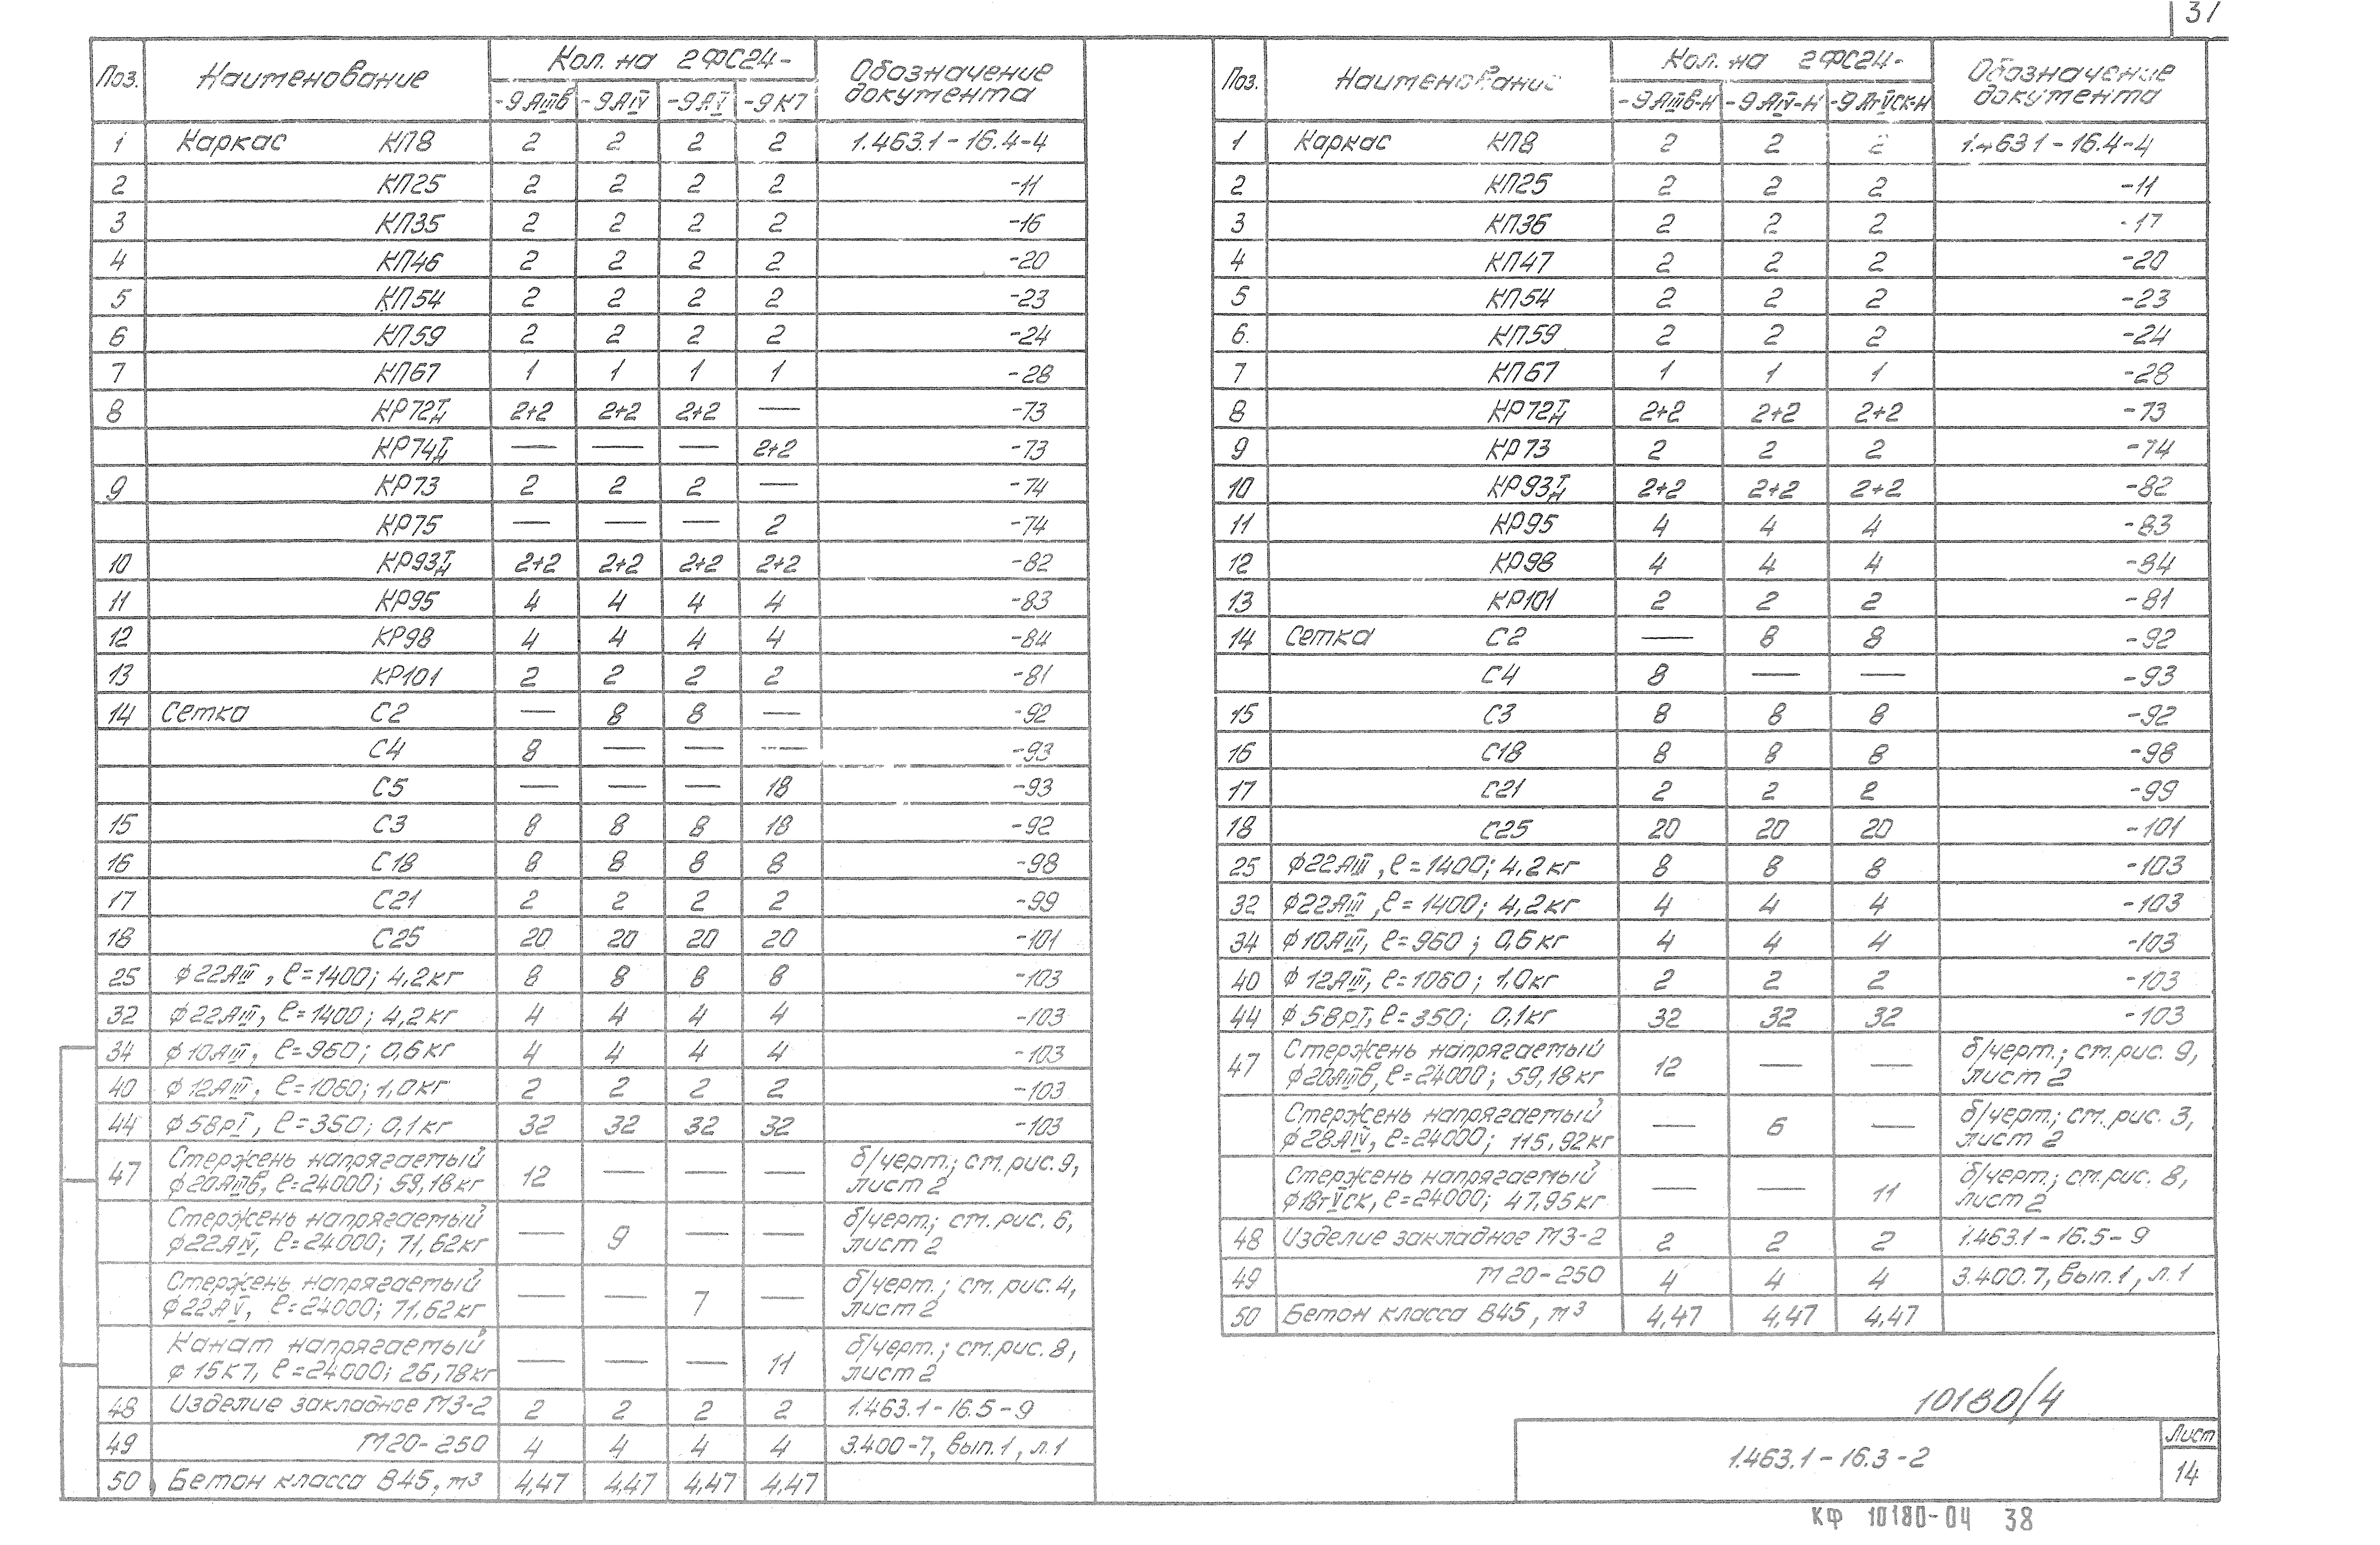 37
Поз. Наименование Кол. на 2ФС24- Обозначение документа
-9АIIIв -9АIV -9АV -9К7
1 Каркас КП8 2 2 2 2 1.463.1-16.4-4
2 КП25 2 2 2 2 -11
3 КП35 2 2 2 2 -16
4 КП46 2 2 2 2 -20
5 КП54 2 2 2 2 -23
6 КП59 2 2 2 2 -24
7 КП67 1 1 1 1 -28
8 КР72Т/Н 2+2 2+2 2+2 — -73
КР74Т/Н — — — 2+2 -73
9 КР73 2 2 2 — -74
КР75 — — — 2 -74
10 КР93Т/Н 2+2 2+2 2+2 2+2 -82
11 КР95 4 4 4 4 -83
12 КР98 4 4 4 4 -84
13 КР101 2 2 2 2 -81
14 Сетка С2 — 8 8 — -92
С4 8 — — — -93
С5 — — — 18 -93
15 С3 8 8 8 18 -92
16 С18 8 8 8 8 -98
17 С21 2 2 2 2 -99
18 С25 20 20 20 20 -101
25 ϕ22АIII, ℓ=1400; 4,2кг 8 8 8 8 -103
32 ϕ22АIII, ℓ=1400; 4,2кг 4 4 4 4 -103
34 ϕ10АIII, ℓ=960; 0,6кг 4 4 4 4 -103
40 ϕ12АIII, ℓ=1060; 1,0кг 2 2 2 2 -103
44 ϕ5ВрI, ℓ=350; 0,1кг 32 32 32 32 -103
47 Стержень напрягаемый ϕ20АIIIв, ℓ=24000; 59,18кг 12 — — — б/черт.; см. рис. 9, лист 2
Стержень напрягаемый ϕ22АIV, ℓ=24000; 71,62кг — 9 — — б/черт.; см. рис. 6, лист 2
Стержень напрягаемый ϕ22АV, ℓ=24000; 71,62кг — — 7 — б/черт.; см. рис. 4, лист 2
Канат напрягаемый ϕ15К7, ℓ=24000; 26,78кг — — — 11 б/черт.; см. рис. 8, лист 2
48 Изделие закладное МЗ-2 2 2 2 2 1.463.1-16.5-9
49 М20-250 4 4 4 4 3.400-7, вып.1, л.1
50 Бетон класса В45, м³ 4,47 4,47 4,47 4,47
Поз. Наименование Кол. на 2ФС24- Обозначение документа
-9АIIIв-Н -9АIV-Н -9АтVСК-Н
1 Каркас КП8 2 2 2 1.463.1-16.4-4
2 КП25 2 2 2 -11
3 КП36 2 2 2 -17
4 КП47 2 2 2 -20
5 КП54 2 2 2 -23
6. КП59 2 2 2 -24
7 КП67 1 1 1 -28
8 КР72Т/Н 2+2 2+2 2+2 -73
9 КР73 2 2 2 -74
10 КР93Т/Н 2+2 2+2 2+2 -82
11 КР95 4 4 4 -83
12 КР98 4 4 4 -84
13 КР101 2 2 2 -81
14 Сетка С2 — 8 8 -92
С4 8 — — -93
15 С3 8 8 8 -92
16 С18 8 8 8 -98
17 С21 2 2 2 -99
18 С25 20 20 20 -101
25 ϕ22АIII, ℓ=1400; 4,2кг 8 8 8 -103
32 ϕ22АIII, ℓ=1400; 4,2кг 4 4 4 -103
34 ϕ10АIII, ℓ=960; 0,6кг 4 4 4 -103
40 ϕ12АIII, ℓ=1060; 1,0кг 2 2 2 -103
44 ϕ5ВрI, ℓ=350; 0,1кг 32 32 32 -103
47 Стержень напрягаемый ϕ20АIIIв, ℓ=24000; 59,18кг 12 — — б/черт.; см. рис. 9, лист 2
Стержень напрягаемый ϕ28АIV, ℓ=24000; 115,92кг — 6 — б/черт.; см. рис. 3, лист 2
Стержень напрягаемый ϕ18тVСК, ℓ=24000; 47,95кг — — 11 б/черт.; см. рис. 8, лист 2
48 Изделие закладное МЗ-2 2 2 2 1.463.1-16.5-9
49 М20-250 4 4 4 3.400.7, вып.1, л.1
50 Бетон класса В45, м³ 4,47 4,47 4,47
10180/4
1.463.1-16.3-2
Лист
14
КФ 10180-04 38